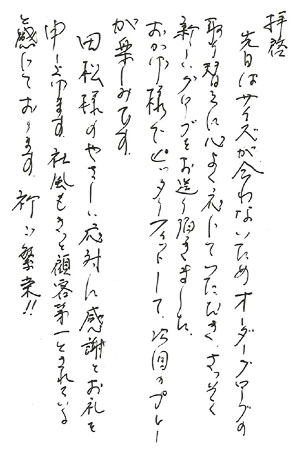 拝啓
先日はサイズが合わないためオーダーグローブの
取り替えに心よく応じていただき、さっそく
新しいグローブをお送り頂きました。
おかげ様でピッターフィットして、次回のプレー
が楽しみです。
田松様のやさしい応対に感謝とお礼を
申し上げます。社風もきっと顧客第一とされている
と感じております。祈ご繁栄!!